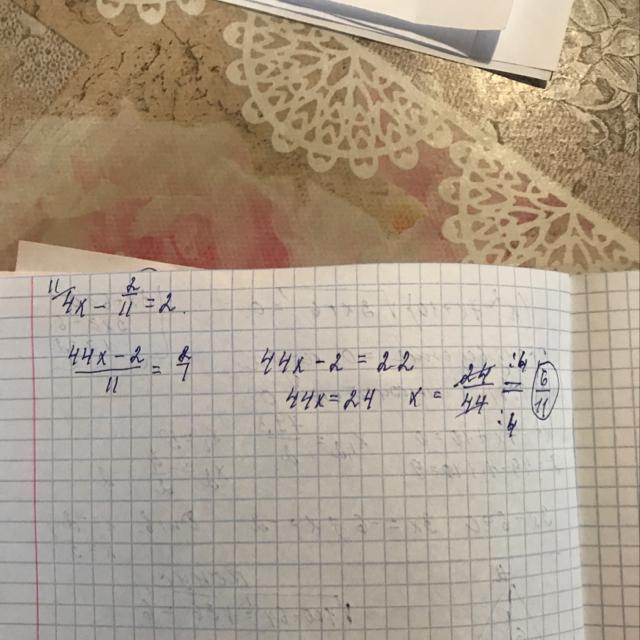 11/4x - 2/11 = 2.
(44x - 2)/11 = 2/1
44x - 2 = 22
44x = 24 x = 24/44 :4/:4 = 6/11